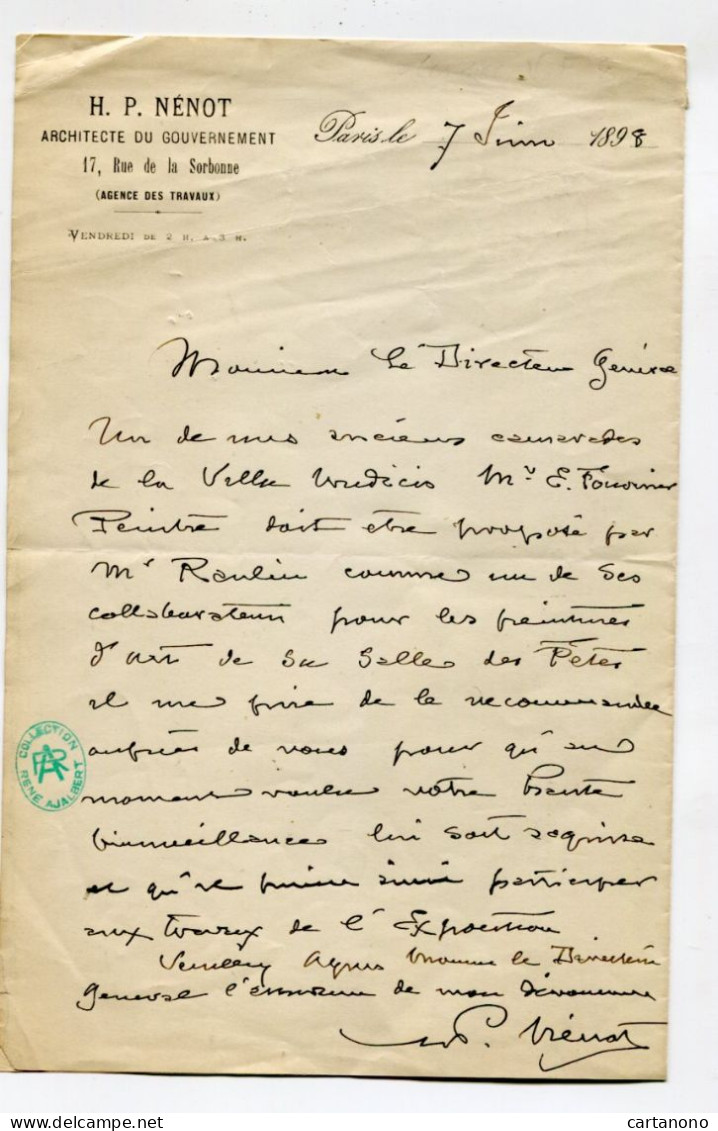 H. P. NÉNOT
ARCHITECTE DU GOUVERNEMENT
17, Rue de la Sorbonne
(AGENCE DES TRAVAUX)
VENDREDI DE 2 H. A 3 H.
Paris, le 7 Juin 1898
Monsieur le Directeur Général
Un de mes anciens camarades
de la Villa Médicis Mr E. Fournier
Peintre doit être proposé par
Mr Raulin comme un de ses
collaborateurs pour les peintures
d'art de sa Salle des Fêtes
il me prie de le recommander
auprès de vous pour qu'au
moment voulu votre haute
bienveillance lui soit acquise
et qu'il puisse ainsi participer
aux travaux de l'Exposition
Veuillez Agréer Monsieur le Directeur
General l'assurance de mon dévouement
P. Nénot
COLLECTION
RENÉ AJALBERT
cartanono